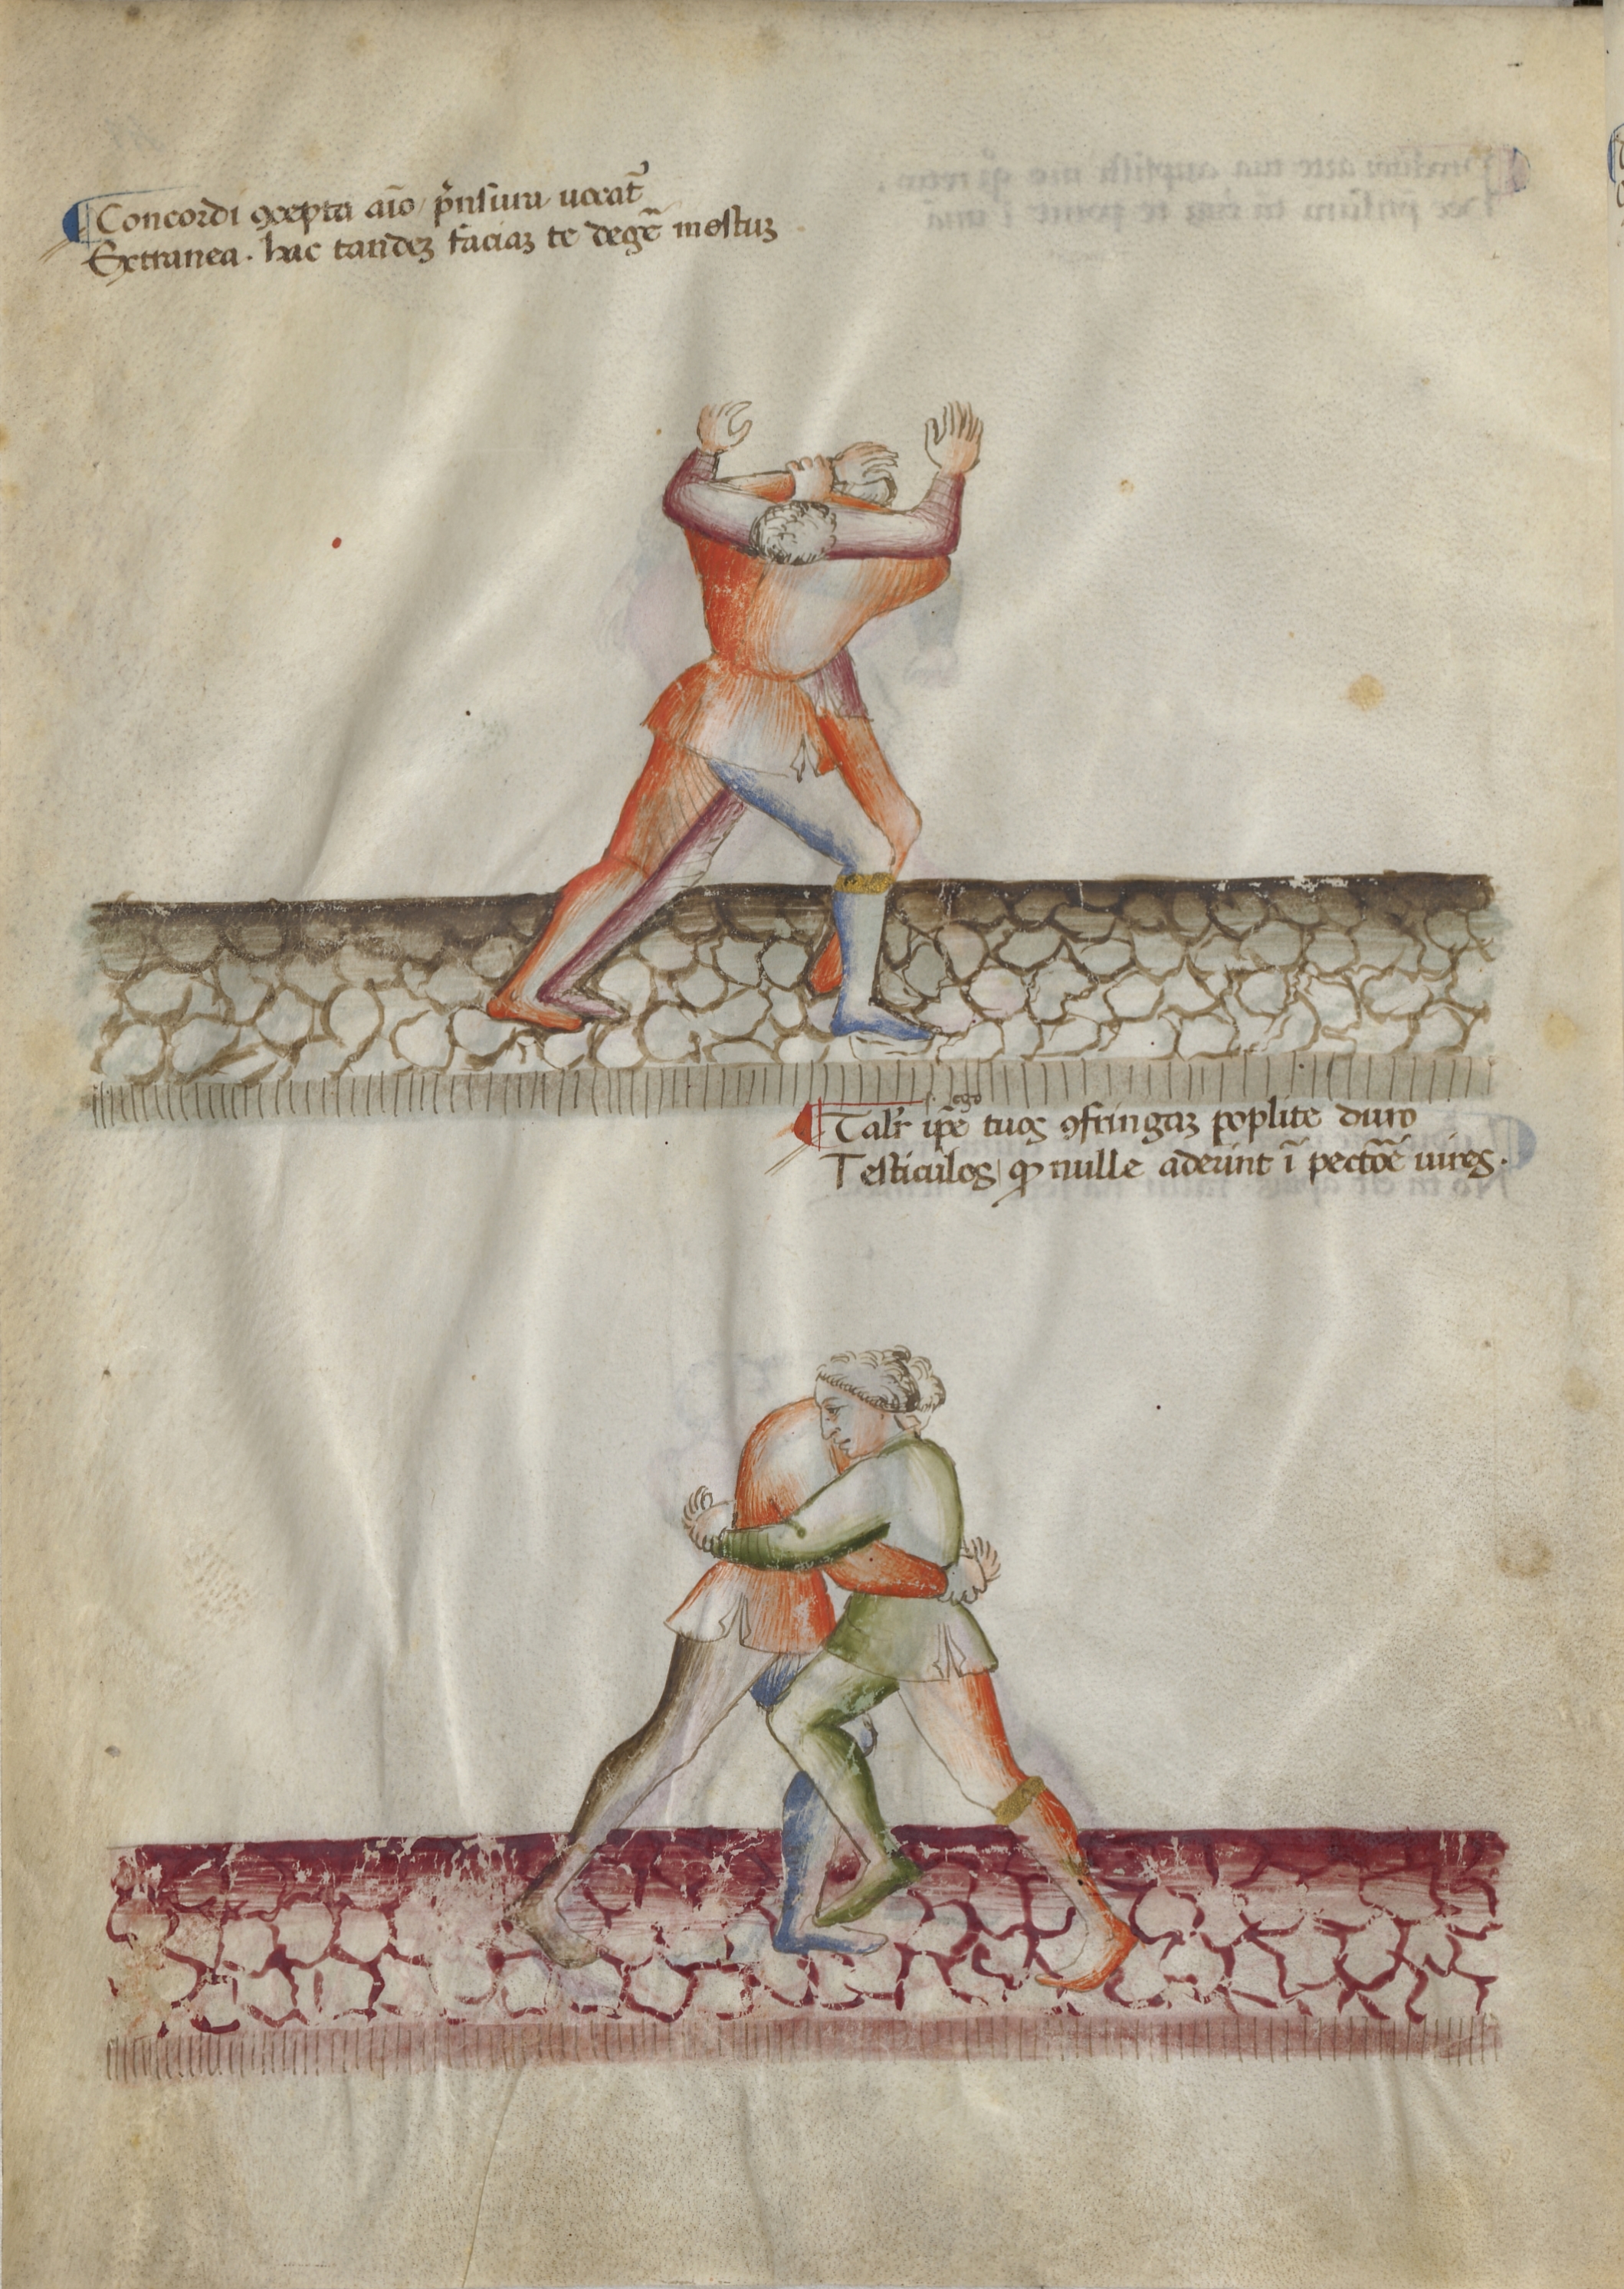 Concordi ꝯcepta aīo / p̄nsura uocat̄
Extranea. hac tandeꝫ faciaꝫ te degē mestuꝫ
.s. ego
Tal'r ip̄e tuos ꝯfringaꝫ poplite duro
Testiculos / ꝙ nulle aderint ī pectōē uires.